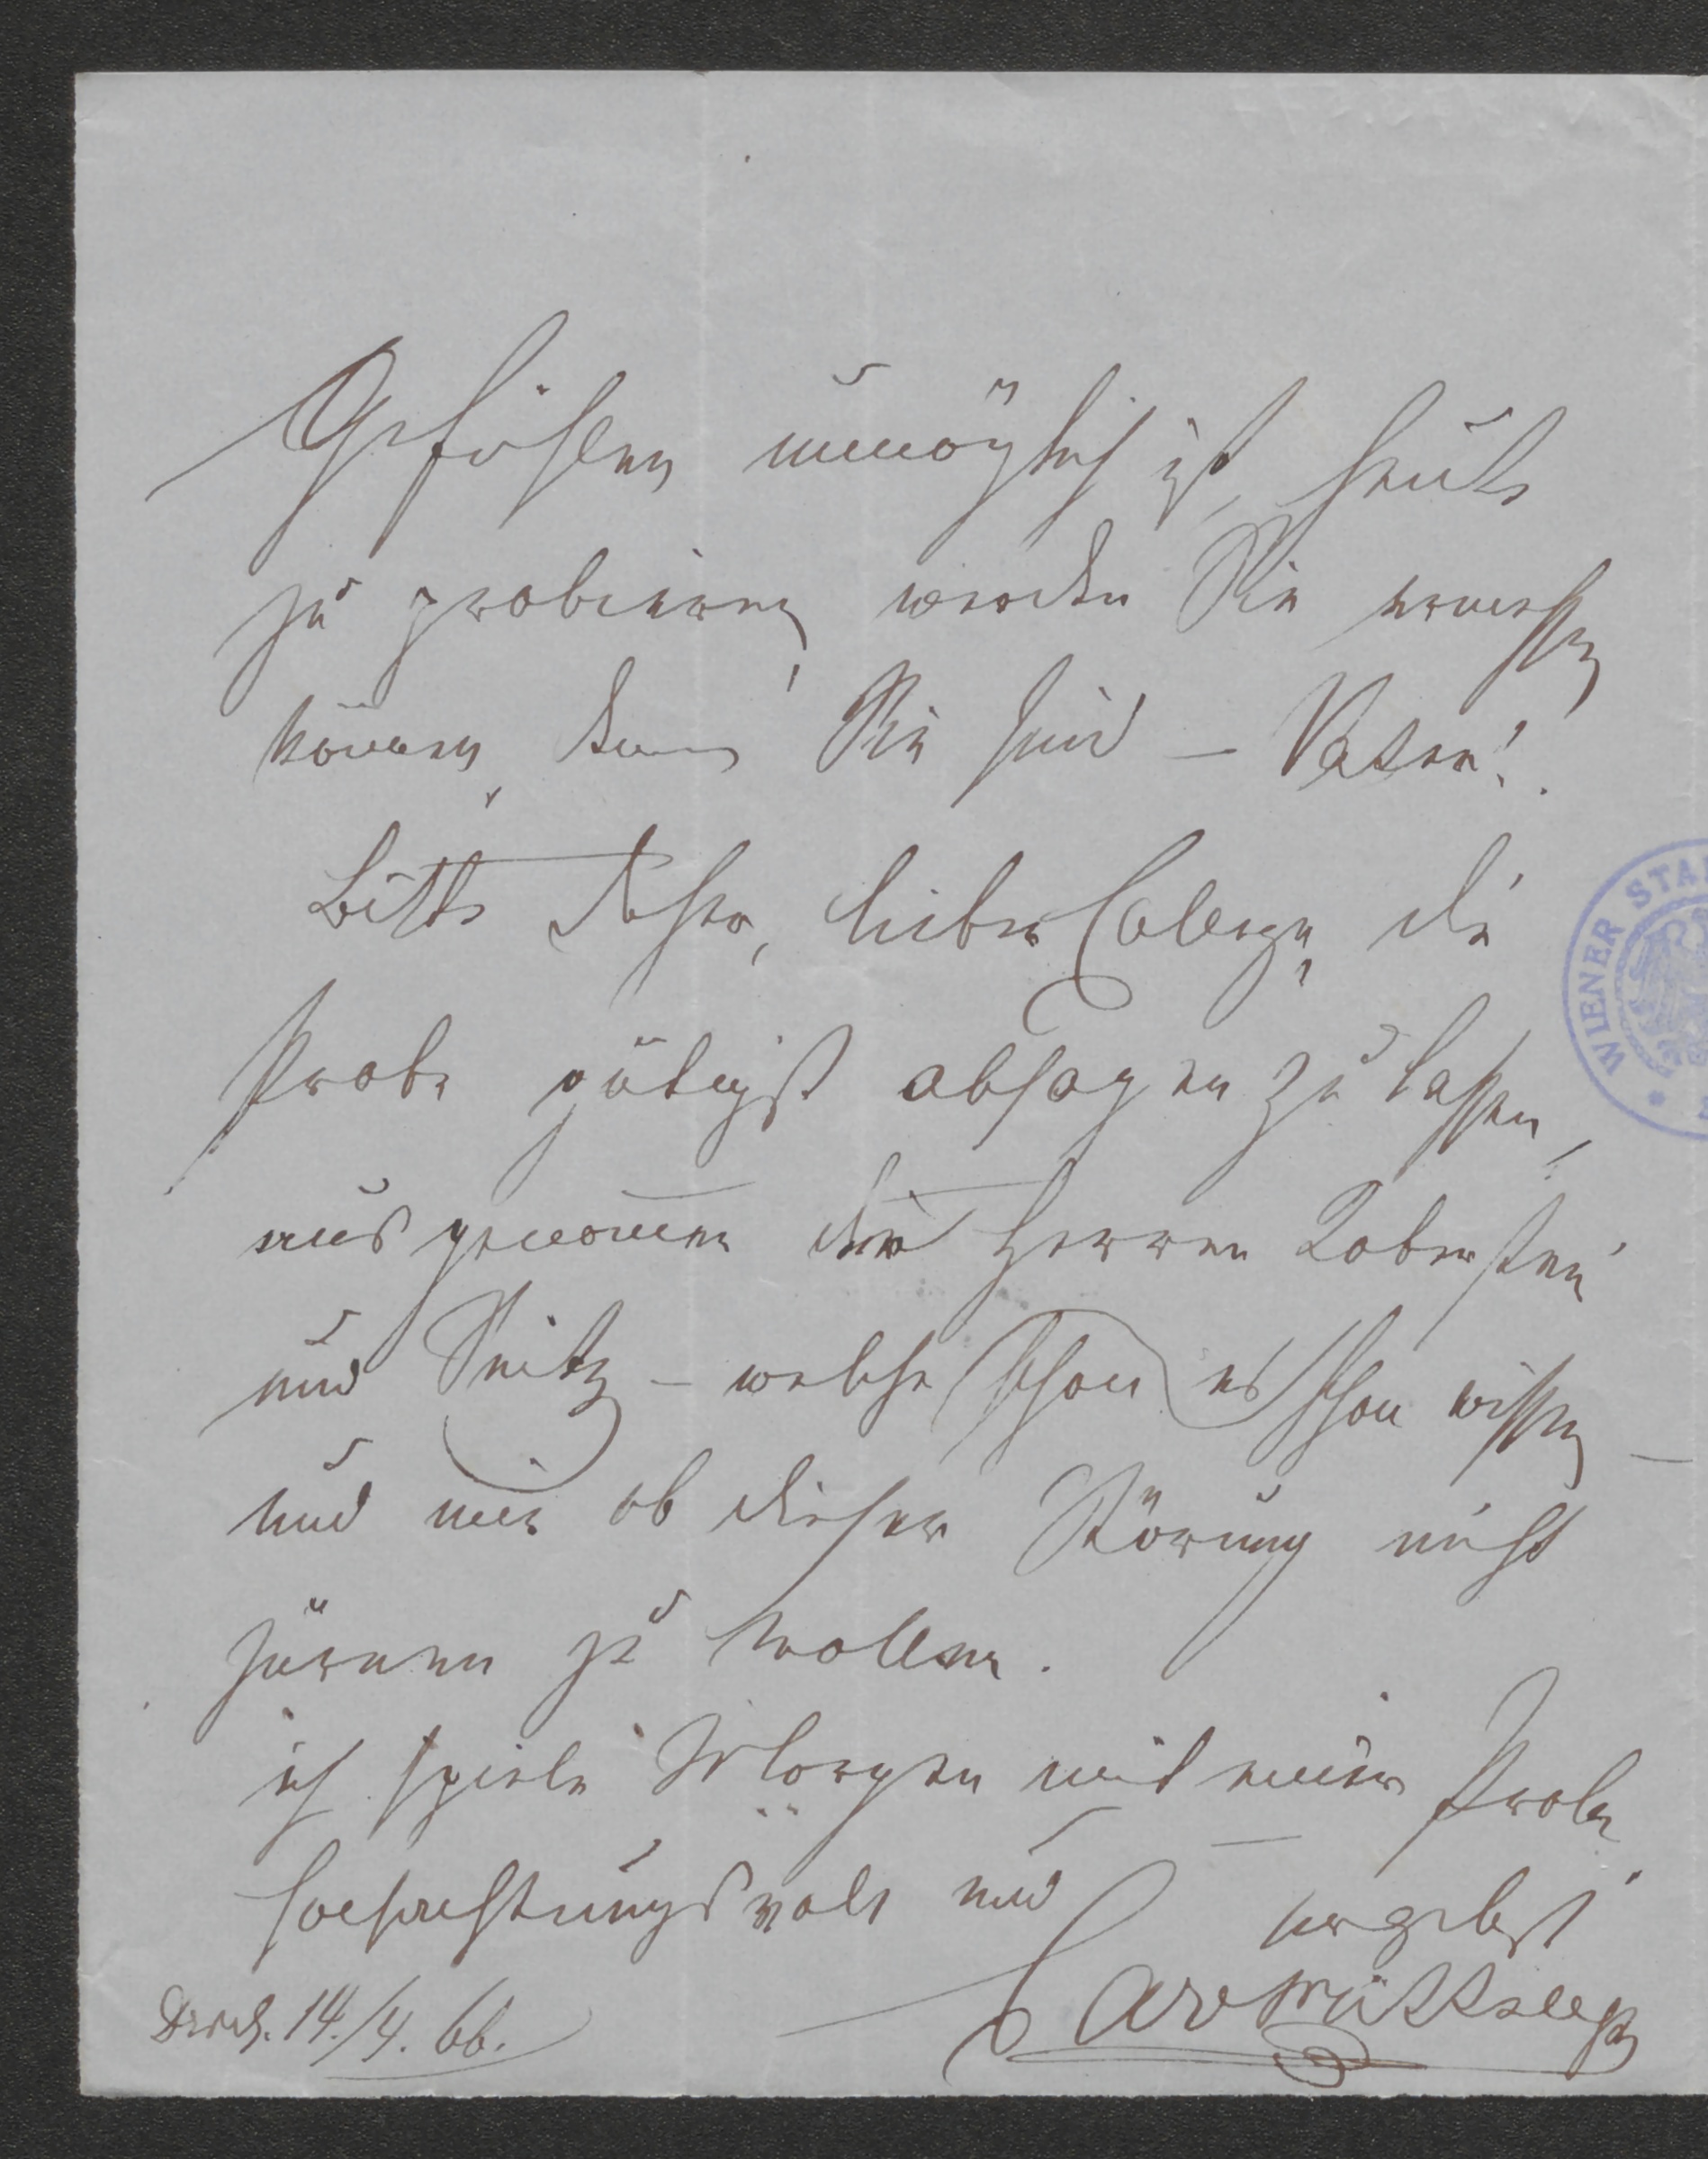 Gefühlen unmöglich ist, heute
zu probieren, werden Sie ermessen
können, denn Sie sind – Vater!
Bitte daher, lieber College, die
Probe gütigst absagen zu lassen,
ausgenommen den Herren Loberstein
und Seitz – welche schon es schon wissen –
und mir ob dieser Störung nicht
zürnen zu wollen.
ich spiele Morgen mit einer Probe
hochachtungsvoll und
ergebst
Drsd. 14./4. 66.
WIENER STA